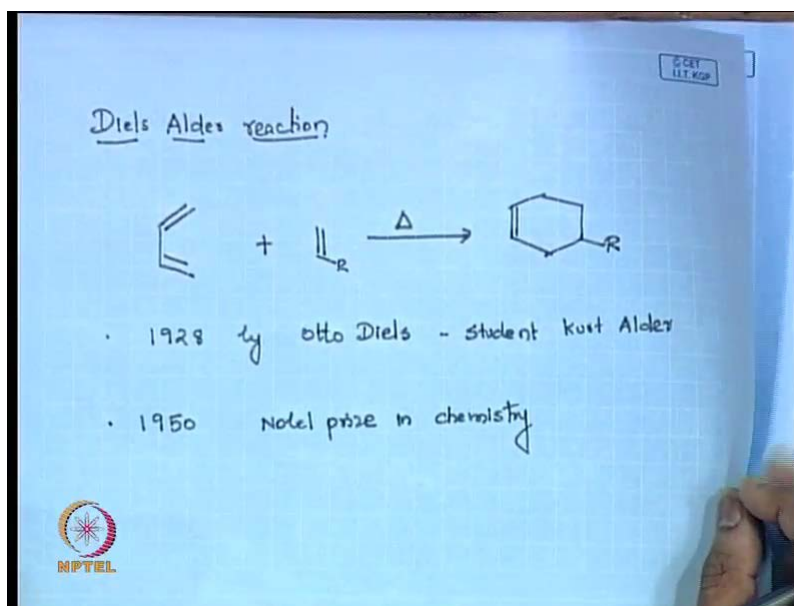 © CET
I.I.T. KGP
Diels Alder reaction
+ R Δ R
· 1928 by Otto Diels - student Kurt Alder
· 1950 Nobel prize in chemistry
NPTEL